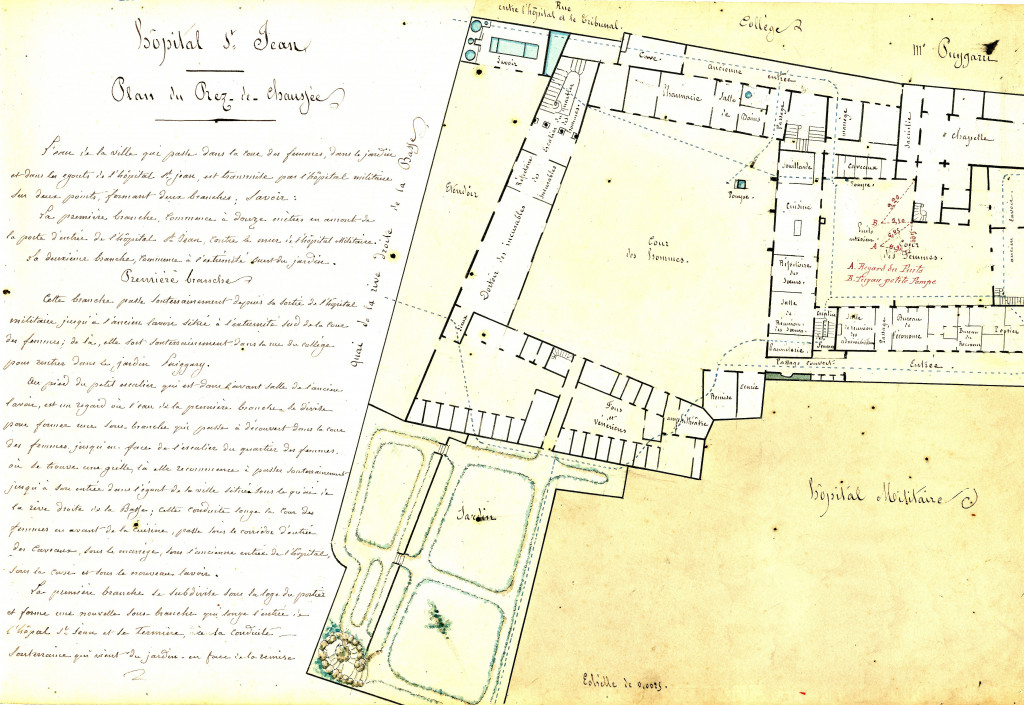 Hôpital St Jean
Plan du Rez-de-Chaussée
L'eau de la ville qui passe dans la cour des femmes, dans le jardin
et dans les egouts de l'hôpital St Jean, est transmise par l'hôpital militaire
sur deux points, formant deux branches; Savoir:
La première branche, commence à douze mètres en amont de
la porte d'entrée de l'hôpital St Jean, contre le mur de l'hôpital Militaire.
La deuxième branche, commence à l'extrémité ouest du jardin.
Première branche
Cette branche passe souterrainement depuis sa sortie de l'hôpital
militaire jusqu'à l'ancien lavoir situé à l'extremité sud de la cour
des femmes; de là, elle sort souterrainement dans la rue du collège
pour rentrer dans le jardin Puiggary.
Au pied du petit escalier qui est dans l'avant salle de l'ancien
lavoir, est un regard où l'eau de la première branche, se divise
pour former une sous branche qui passe à découvert dans la cour
des femmes, jusqu'en face de l'escalier du quartier des femmes
où se trouve une grille, là elle recommence à passer souterrainement
jusqu'à son entrée dans l'égout de la ville située sous le quai de
la rive droite de la Basse; cette conduite longe la cour des
femmes en avant de la cuisine, passe sous le corridor d'entrée
des caveaux, sous le manège, sous l'ancienne entrée de l'hôpital,
sous la cave et sous le nouveau lavoir.
La première branche se subdivise sous la loge du portier
et forme une nouvelle sous branche qui longe l'entrée de
l'hôpital St Jean et se termine à la conduite
souterraine qui vient du jardin en face de la remise
Quai de la rive droite de la Basse
Rue
entre l'hôpital et le Tribunal.
Collège
Mr Puygarri
Lavoir
Cave
Ancienne entrée
Pharmacie
Salle
de
Bains
Passage
Manège
Sacristie
Chapelle
Escalier du quartier
des hommes
Réfectoire
des
Incurables
Dortoir des incurables
Etendoir
Latrines
Cour
des hommes
Pompe
Souillarde
Caveaux
Pompe
Cuisine
Puits
intérieur
Cour
des Femmes
A. Regard du Puits
B. Tuyau petite Pompe
Lavoir
ancien
Réfectoire
des
Sœurs
Salle
de
Réunion
des Sœurs
Salle
de réunion
des administrateurs
Passage
Bureau
de
l'économe
Bureau
du
Receveur
Portier
Passage Couvert
Entrée
Remise
Ecurie
Fous
et
Vénériens
amphithéâtre
Jardin
Hôpital Militaire
Echelle de 0,0025.